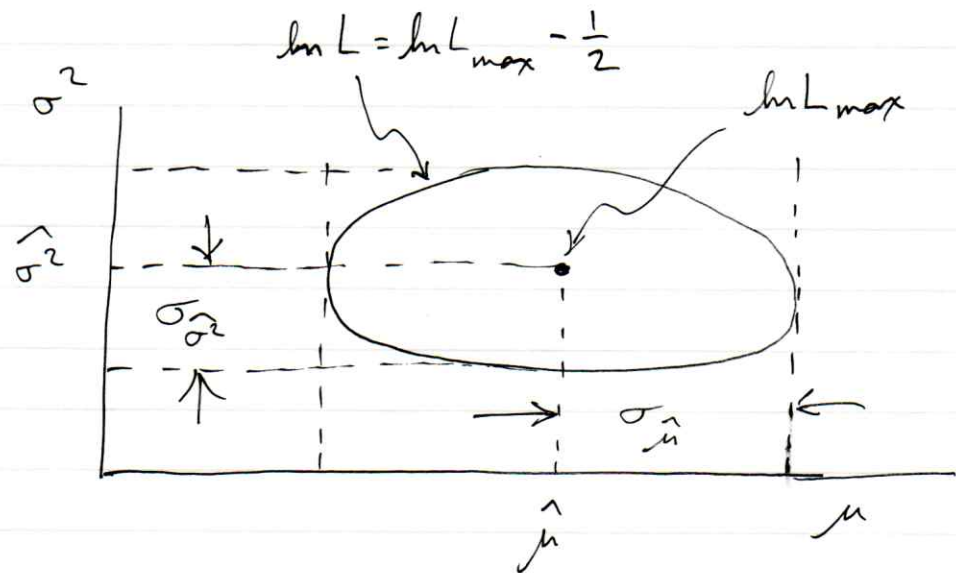 ln L = ln L_max - 1/2
σ²
ln L_max
σ̂²
σ_σ̂²
σ_μ̂
μ̂
μ